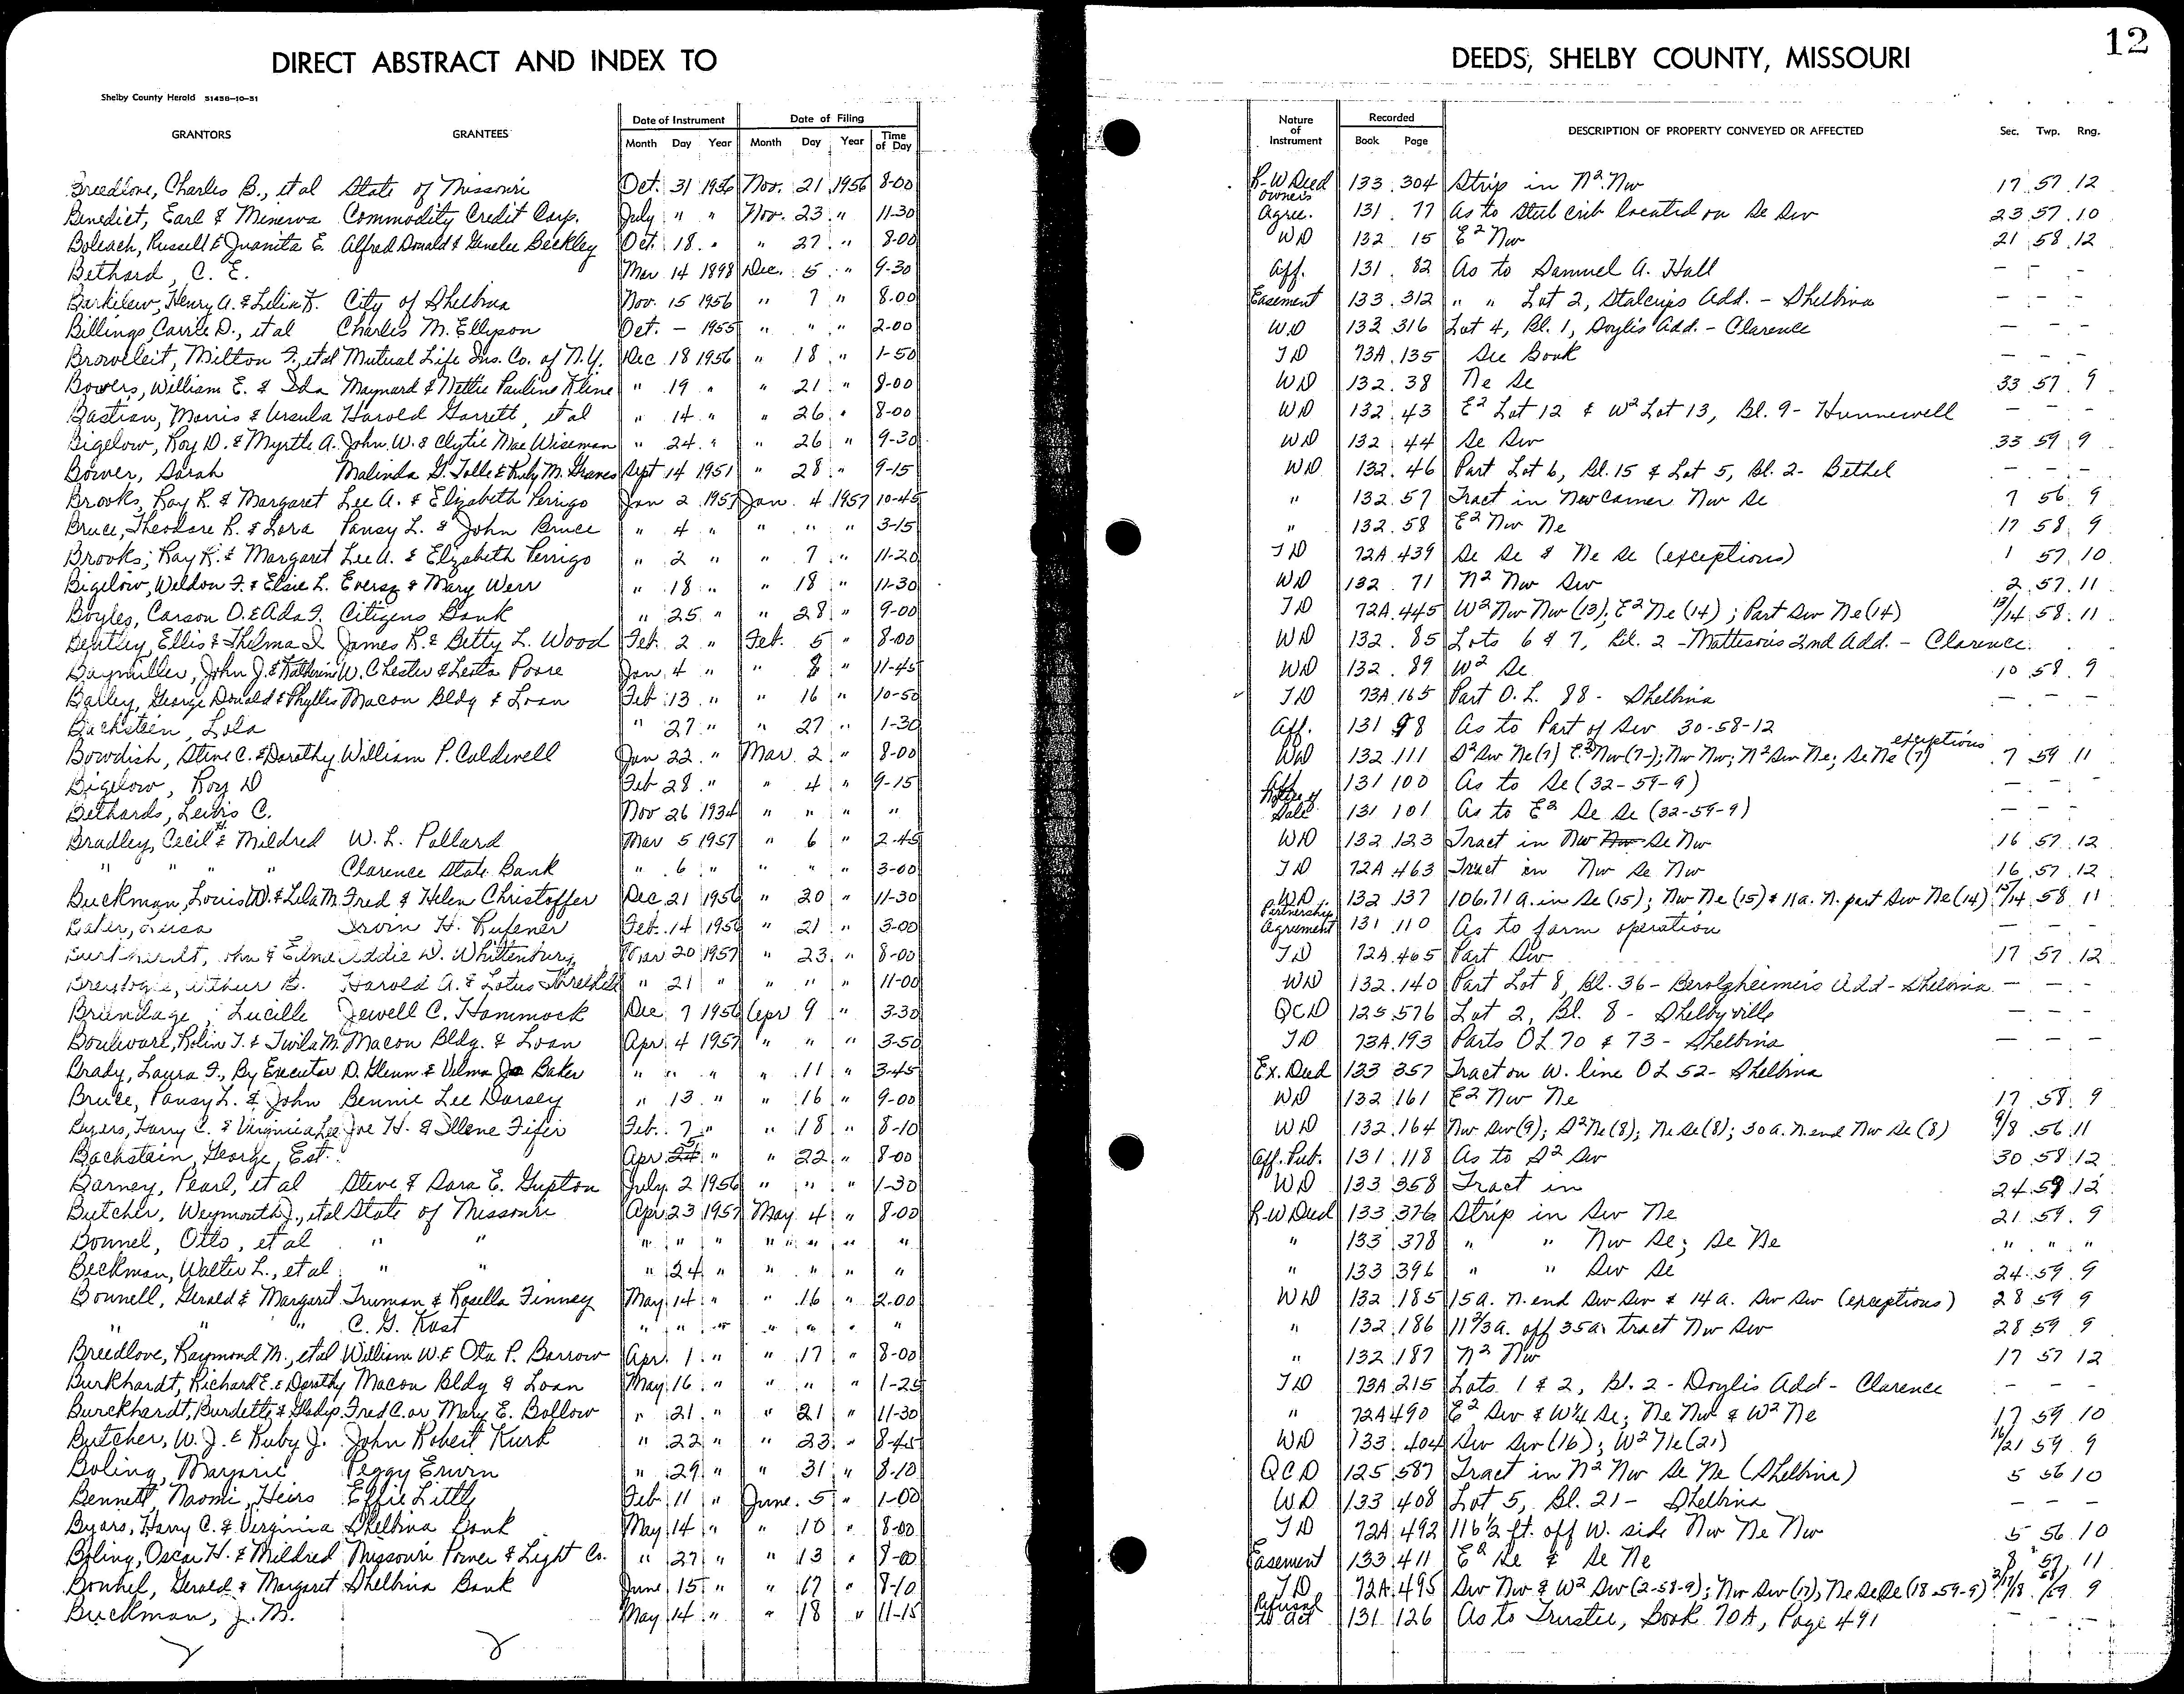 12
DIRECT ABSTRACT AND INDEX TO DEEDS, SHELBY COUNTY, MISSOURI
Shelby County Herald 51458-10-51
Date of Instrument Date of Filing Nature of Instrument Recorded
GRANTORS GRANTEES Month Day Year Month Day Year Time of Day Book Page DESCRIPTION OF PROPERTY CONVEYED OR AFFECTED Sec. Twp. Rng.
Breedlove, Charles B., et al State of Missouri Oct. 31 1956 Nov. 21 1956 8-00 R-W Deed 133 304 Strip in N² Nw 17 57 12
Benedict, Earl & Minerva Commodity Credit Corp. July " " Nov. 23 " 11-30 Owner's Agree. 131 77 As to Steel crib located on Se Sw 23 57 10
Boleach, Russell & Juanita E. Alfred Donald & Genelee Beckley Oct. 18 " " 27 " 8-00 WD 132 15 E² Nw 21 58 12
Bethard, C. E. Mar 14 1898 Dec. 5 " 9-30 Aff. 131 82 As to Samuel A. Hall — — —
Barkelew, Henry A. & Lelia K. City of Shelbina Nov. 15 1956 " 7 " 8-00 Easement 133 312 " " Lot 2, Stalcups Add. - Shelbina — — —
Billings, Carrie D., et al Charles M. Ellyson Oct. — 1955 " " " 2-00 WD 132 316 Lot 4, Bl. 1, Doyle's Add. - Clarence — — —
Broweleit, Milton F., et al Mutual Life Ins. Co. of N.Y. Dec 18 1956 " 18 " 1-50 TD 73A 135 See Book — — —
Bowers, William E. & Ida Maynard & Nettie Pauline Kline " 19 " " 21 " 8-00 WD 132 38 Ne Se 33 57 9
Bastian, Morris & Ursula Harold Garrett, et al " 14 " " 26 " 8-00 WD 132 43 E² Lot 12 & W² Lot 13, Bl. 9 - Hunnewell — — —
Bigelow, Roy D. & Myrtle A. John W. & Clytie Mae Wiseman " 24 " " 26 " 9-30 WD 132 44 Se Sw 33 59 9
Bower, Sarah Malinda G. Tolle & Ruby M. Graves Sept 14 1951 " 28 " 9-15 WD 132 46 Part Lot 6, Bl. 15 & Lot 5, Bl. 2 - Bethel — — —
Brooks, Ray R. & Margaret Lee A. & Elizabeth Perrigo Jan 2 1957 Jan. 4 1957 10-45 " 132 57 Tract in Nw Corner Nw Se 7 56 9
Bruce, Theodore R. & Lora Pansy L. & John Bruce " 4 " " " " 3-15 " 132 58 E² Nw Ne 17 58 9
Brooks, Ray R. & Margaret Lee A. & Elizabeth Perrigo " 2 " " 7 " 11-20 TD 72A 439 Se Se & Ne Se (exceptions) 1 57 10
Bigelow, Weldon F. & Elsie L. Eversz & Mary Werr " 18 " " 18 " 11-30 WD 132 71 N² Nw Sw 2 57 11
Boyles, Carson O. & Ada F. Citizens Bank " 25 " " 28 " 9-00 TD 72A 445 W² Nw Nw (13); E² Ne (14); Part Sw Ne (14) 13/14 58 11
Bentley, Ellis & Thelma I James R. & Betty L. Wood Feb. 2 " Feb. 5 " 8-00 WD 132 85 Lots 6 & 7, Bl. 2 - Mattison's 2nd Add. - Clarence
Baymiller, John J. & Katherine W. Chester & Leota Poore Jan 4 " " 8 " 11-45 WD 132 89 W² Se 10 58 9
Bailey, George Donald & Phyllis Macon Bldg & Loan Feb 13 " " 16 " 10-50 TD 73A 165 Part O. L. 88 - Shelbina — — —
Bachstein, Lola " 27 " " 27 " 1-30 Aff. 131 98 As to Part of Sw 30-58-12
Bowdish, Steve C. & Dorothy William P. Caldwell Jan 22 " Mar. 2 " 8-00 WD 132 111 S² Sw Ne (7) E² Nw (7-); Nw Nw; N² Sw Ne; Se Ne (7) exceptions 7 59 11
Bigelow, Roy D Feb 28 " " 4 " 9-15 Aff. 131 100 As to Se (32-59-9) — — —
Bethards, Lewis C. Nov 26 1934 " " " " Notice of Sale 131 101 As to E² Se Se (32-59-9) — — —
Bradley, Cecil H. & Mildred W. L. Pollard Mar 5 1957 " 6 " 2-45 WD 132 123 Tract in Nw Nw Se Nw 16 57 12
" " " Clarence State Bank " 6 " " " " 3-00 TD 72A 463 Tract in Nw Se Nw 16 57 12
Buckman, Louis W. & Lela M. Fred & Helen Christoffer Dec 21 1956 " 20 " 11-30 WD 132 137 106.71 a. in Se (15); Nw Ne (15) & 11a. N. part Sw Ne (14) 15/14 58 11
Irvin H. Rufener Feb. 14 1956 " 21 " 3-00 Partnership Agreement 131 110 As to farm operation — — —
Addie D. Whittenburg Mar 20 1957 " 23 " 8-00 TD 72A 465 Part Sw 17 57 12
Arthur B. Harold A. & Lotus Threlkeld " 21 " " " " 11-00 WD 132 140 Part Lot 8, Bl. 36 - Berolzheimer's Add - Shelbina — — —
Brundage, Lucille Jewell C. Hammock Dec 7 1956 Apr 9 " 3-30 QCD 125 576 Lot 2, Bl. 8 - Shelbyville — — —
Bouleware, Rolin T. & Twila M. Macon Bldg. & Loan Apr 4 1957 " " " 3-50 TD 73A 193 Parts OL 70 & 73 - Shelbina — — —
Brady, Laura F., By Executor D. Glenn & Velma Jo Baker " " " " 11 " 3-45 Ex. Deed 133 357 Tract on W. line OL 52 - Shelbina
Bruce, Pansy L. & John Bennie Lee Dorsey " 13 " " 16 " 9-00 WD 132 161 E² Nw Ne 17 58 9
Byers, Harry C. & Virginia Lee Joe H. & Illene Fifer Feb. 7 " " 18 " 8-10 WD 132 164 Nw Sw (9); S² Ne (8); Ne Se (8); 30 a. N. end Nw Se (8) 9/8 56 11
Bachstain, George, Est. Apr " " 22 " 8-00 Aff. Pub. 131 118 As to S² Sw 30 58 12
Barney, Pearl, et al Steve & Sara E. Gupton July 2 1956 " " " 1-30 WD 133 358 Tract in 24 59 12
Butcher, Weymouth J., et al State of Missouri Apr 23 1957 May 4 " 8-00 R-W Deed 133 376 Strip in Sw Ne 21 59 9
Bonnel, Otto, et al " " " " " " " " " " 133 378 " " Nw Se; Se Ne " " "
Beckman, Walter L., et al " " " 24 " " " " " " 133 396 " " Sw Se 24 59 9
Bonnell, Gerald & Margaret Truman & Rosella Finney May 14 " " 16 " 2-00 WD 132 185 15 a. N. end Sw Sw & 14 a. Sw Sw (exceptions) 28 59 9
" " " C. G. Kast " " " " " " " " 132 186 11⅔ a. off 35 a. tract Nw Sw 28 59 9
Breedlove, Raymond M., et al William W. & Ota P. Barrow Apr. 1 " " 17 " 8-00 " 132 187 N² Nw 17 57 12
Burkhardt, Richard E. & Dorothy Macon Bldg & Loan May 16 " " " " 1-25 TD 73A 215 Lots 1 & 2, Bl. 2 - Doyle's Add - Clarence — — —
Burckhardt, Burdette & Gladys Fred C. or Mary E. Bollow " 21 " " 21 " 11-30 " 72A 490 E² Sw & W¼ Se; Ne Nw & W² Ne 17 59 10
Butcher, W. J. & Ruby J. John Robert Kurk " 22 " " 23 " 8-45 WD 133 404 Sw Sw (16); W² Ne (21) 16/21 59 9
Boling, Marjorie Peggy Erwin " 29 " " 31 " 8-10 QCD 125 587 Tract in N² Nw Se Ne (Shelbina) 5 56 10
Bennett, Naomi, Heirs Effie Little Feb 11 " June 5 " 1-00 WD 133 408 Lot 5, Bl. 21 - Shelbina — — —
Byars, Harry C. & Virginia Shelbina Bank May 14 " " 10 " 8-00 TD 72A 492 116½ ft. off W. side Nw Ne Nw 5 56 10
Boling, Oscar H. & Mildred Missouri Power & Light Co. " 27 " " 13 " 8-00 Easement 133 411 E² Se & Se Ne 8 57 11
Bonnel, Gerald & Margaret Shelbina Bank June 15 " " 17 " 8-10 TD 72A 495 Sw Nw & W² Sw (2-58-9); Nw Sw (17), Ne Se Se (18-59-9) 2/17/18 58/59 9
Buckman, J. M. May 14 " " 18 " 11-15 Refusal to act 131 126 As to Trustee, Book 70A, Page 491 — — —